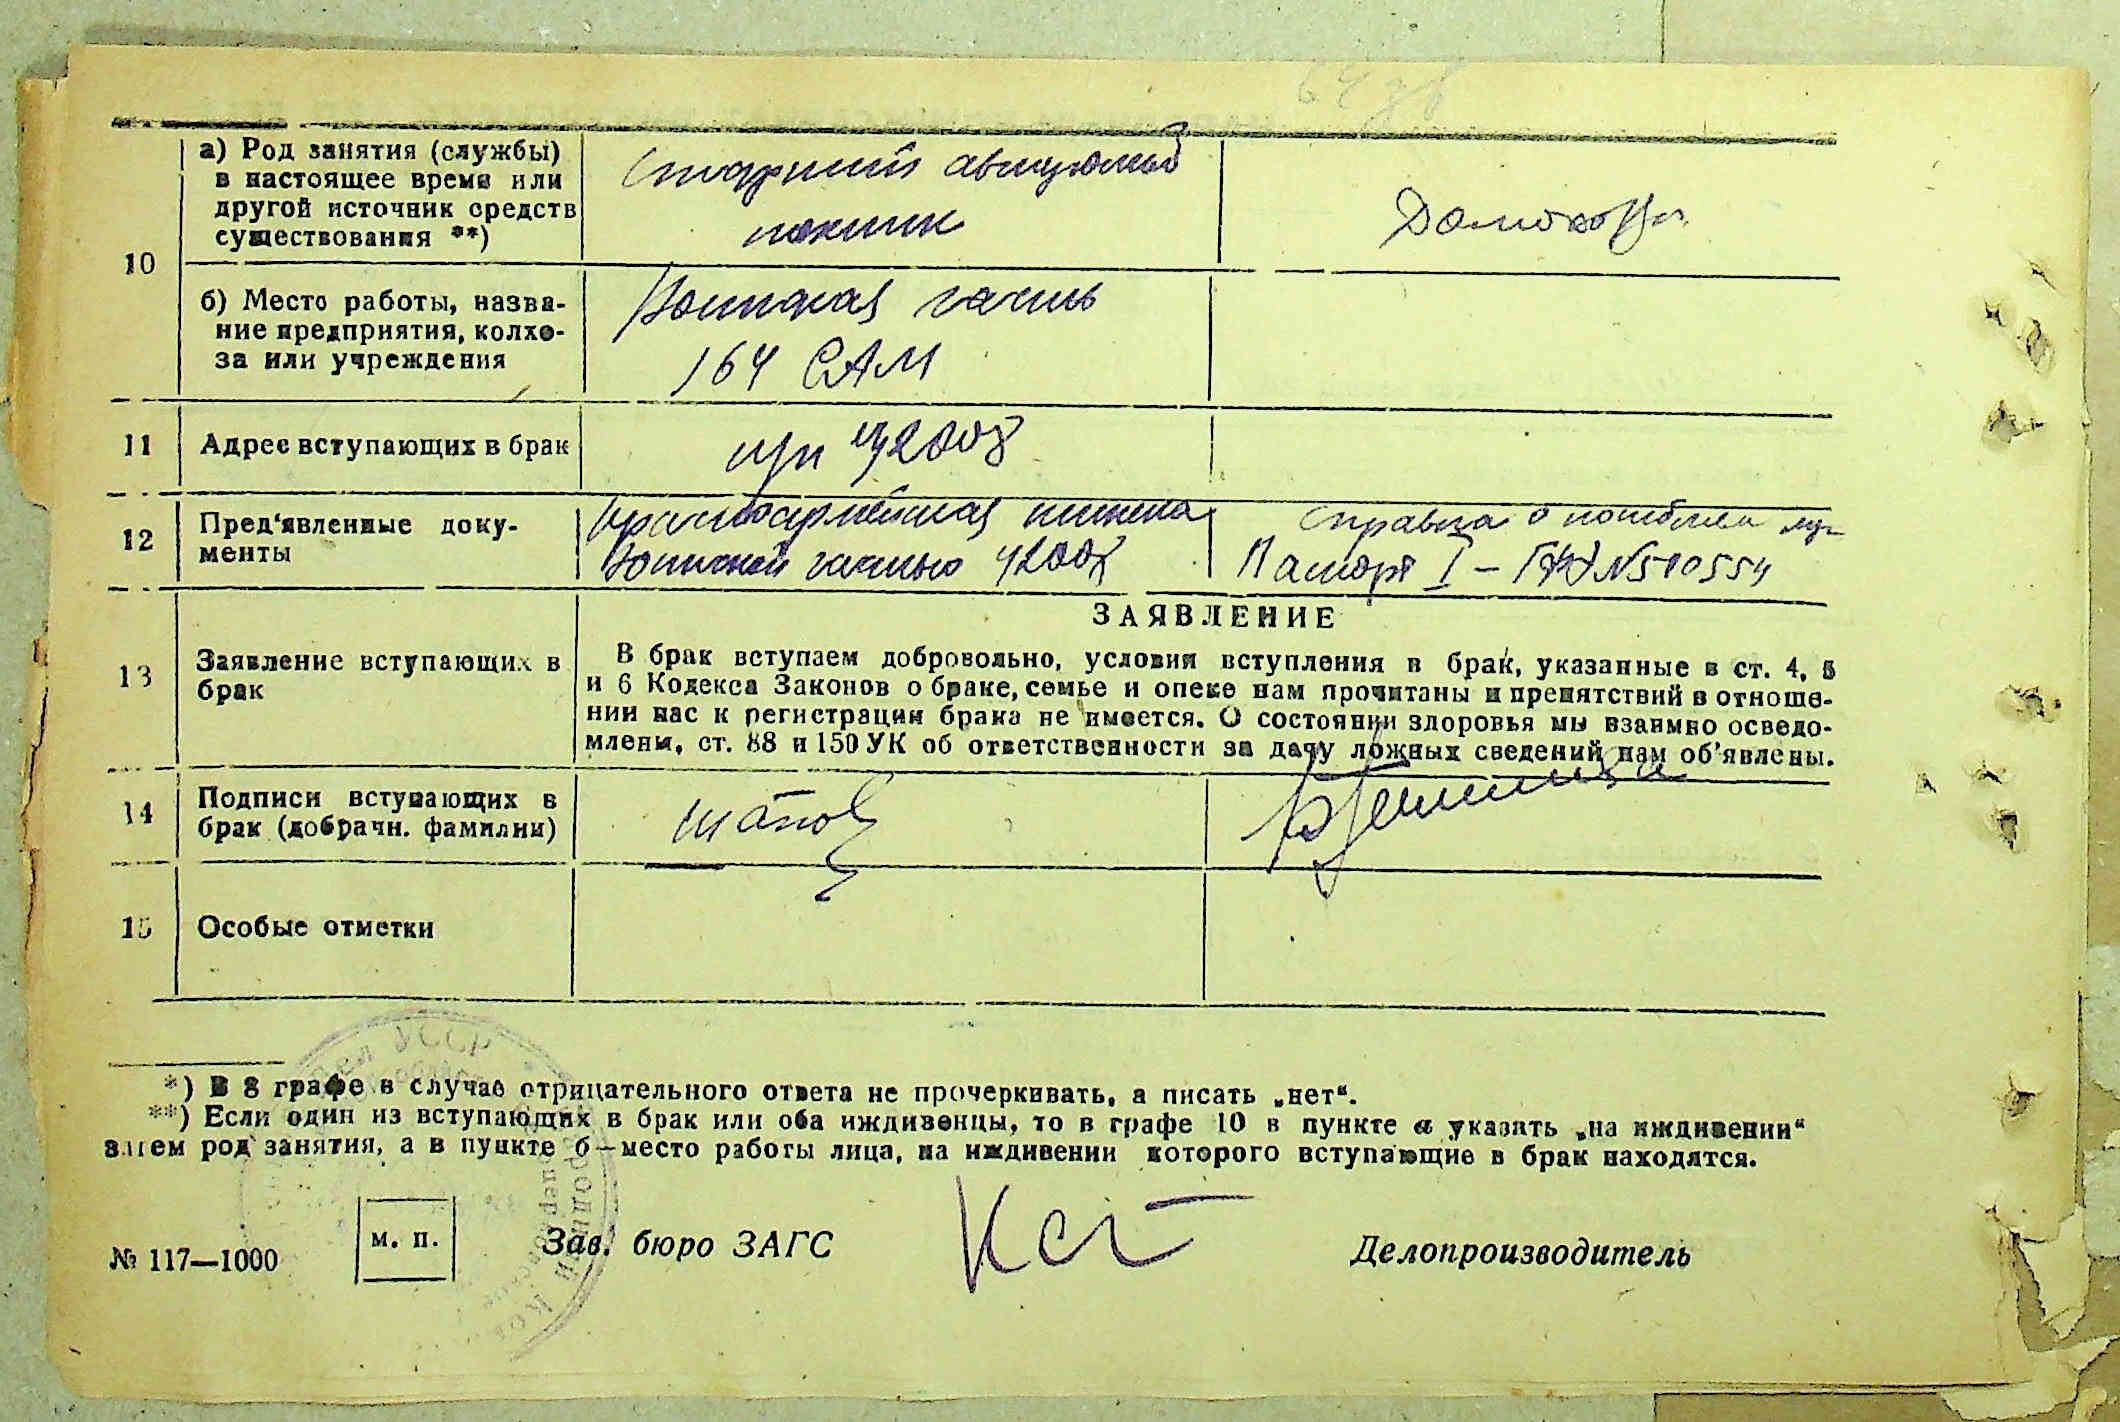 10
а) Род занятия (службы)
в настоящее время или
другой источник средств
существования **)
Старший
Домохоз.
б) Место работы, назва-
ние предприятия, колхо-
за или учреждения
Воинская часть
164 САМ
11
Адрес вступающих в брак
п/п 42008
12
Пред'явленные доку-
менты
Красноармейская книжка
Воинской частью 42008
Справка о
Паспорт I – № 510554
ЗАЯВЛЕНИЕ
13
Заявление вступающих в
брак
В брак вступаем добровольно, условия вступления в брак, указанные в ст. 4, 5
и 6 Кодекса Законов о браке, семье и опеке нам прочитаны и препятствий в отноше-
нии нас к регистрации брака не имеется. О состоянии здоровья мы взаимно осведо-
млены, ст. 88 и 150 УК об ответственности за дачу ложных сведений нам об'явлены.
14
Подписи вступающих в
брак (добрачн. фамилии)
15
Особые отметки
УССР
*) В 8 графе в случае отрицательного ответа не прочеркивать, а писать „нет“.
**) Если один из вступающих в брак или оба иждивенцы, то в графе 10 в пункте а указать „на иждивении“
затем род занятия, а в пункте б—место работы лица, на иждивении которого вступающие в брак находятся.
№ 117—1000
м. п.
Зав. бюро ЗАГС
Делопроизводитель